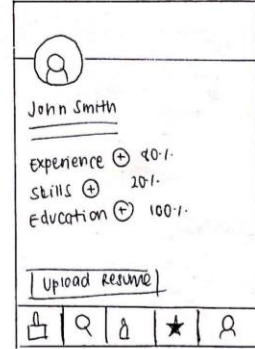 John Smith
Experience ⊕
Skills ⊕ 20%
Education ⊕ 100%
Upload Resume